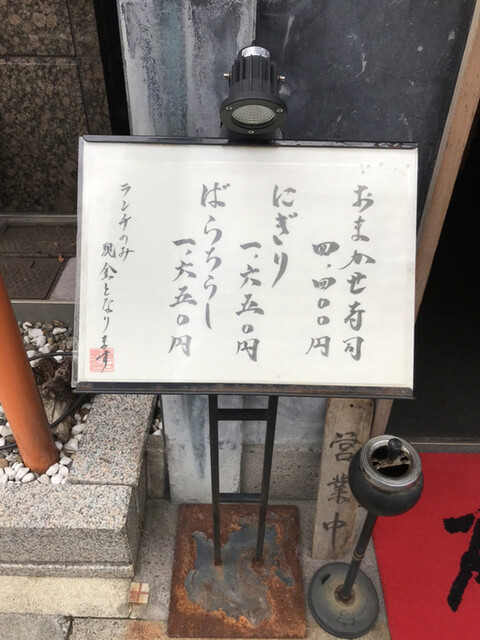 おまかせ寿司
四、四〇〇円
にぎり
一、六五〇円
ばらちらし
一、六五〇円
ランチのみ
現金となります
営業中